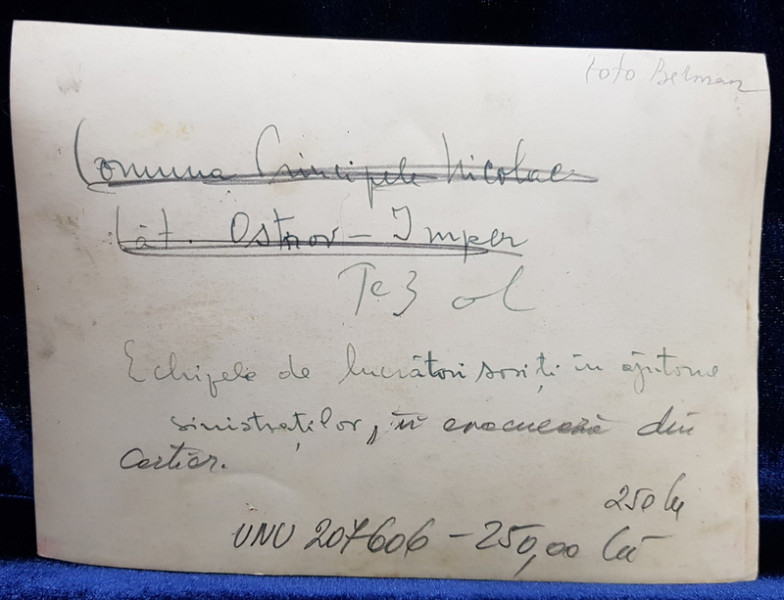 Foto Belman
Comuna Principele Nicolae
Lât. Ostrov - Imper
Te3 ol
Echipele de lucrători sosiți în ajutorul
sinistraților, îi evacuează din
cartier.
250 lei
UNU 207606 - 250,00 lei